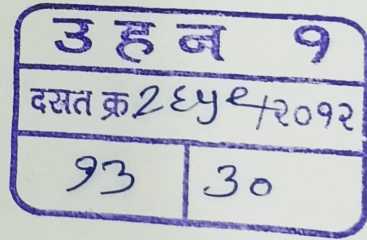 उहन १
दसत क्र २६५९/२०१२
१३ ३०